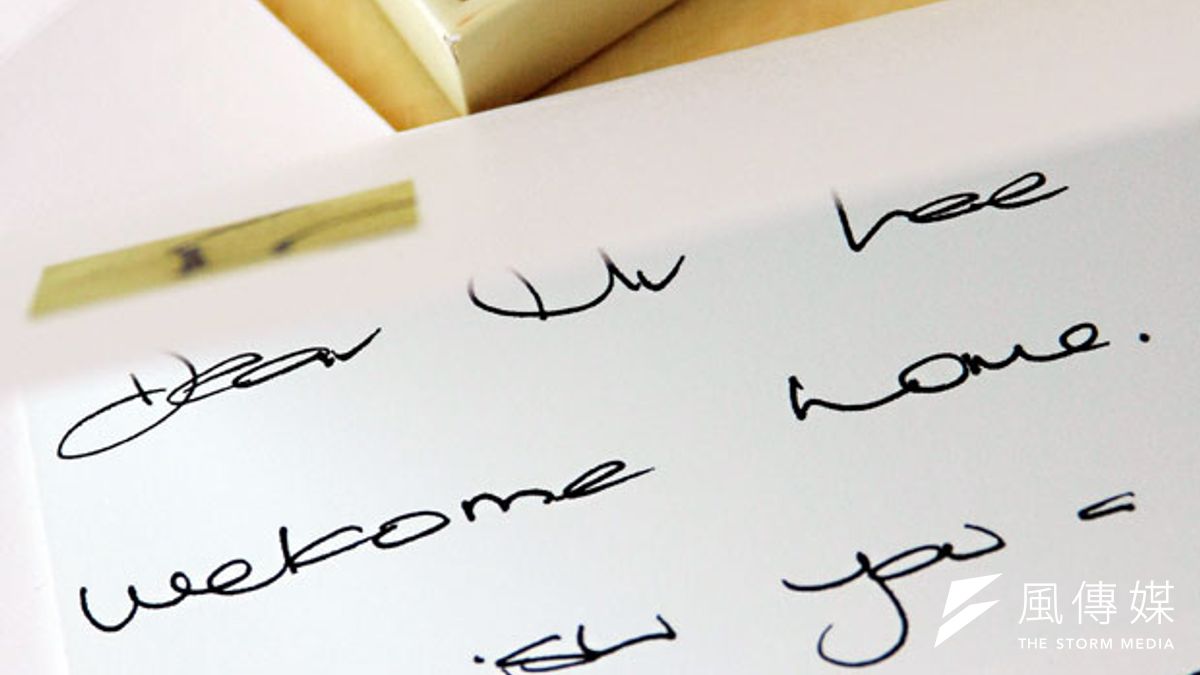 Dear Mr Lee
welcome home.
you
風傳媒
THE STORM MEDIA